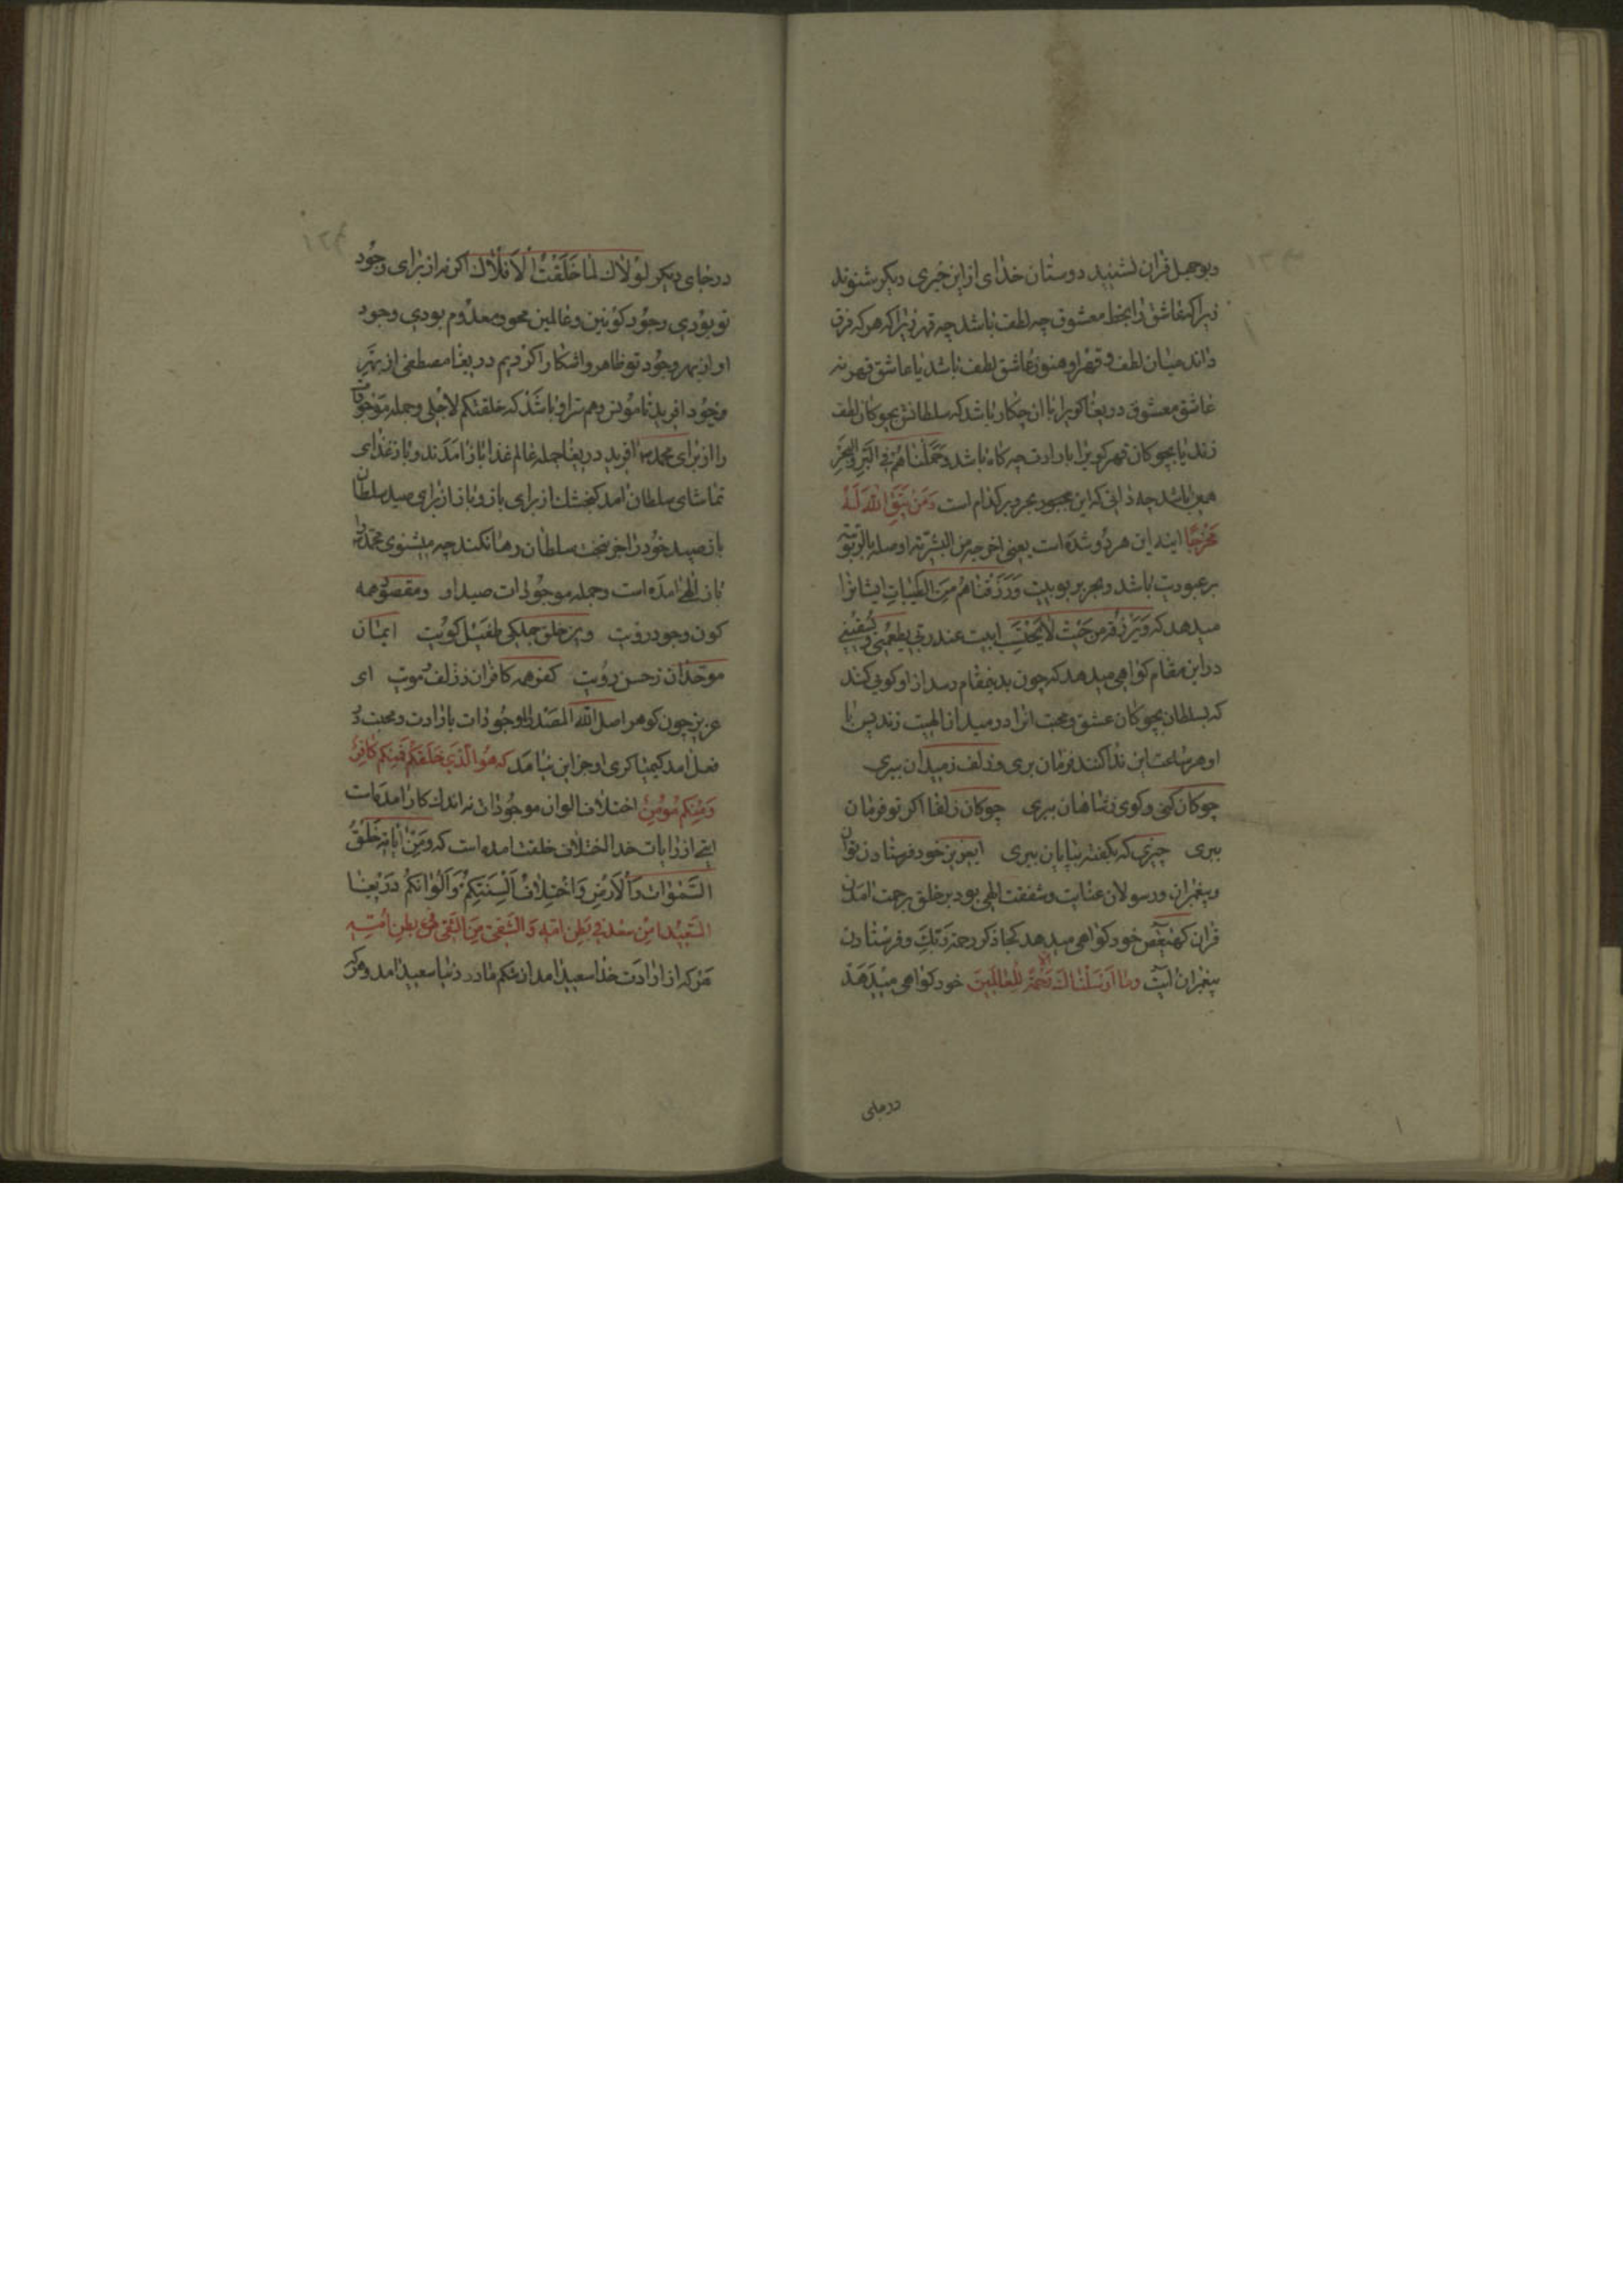 وبوجهل قران نشنید دوستان خذای از این خبری دیکر شنوند
زیرا که عاشق را بخط معشوق چه لطف باشد چه قهر زیرا که هر که فرق
داند میان لطف و قهر او هنوز عاشق لطف باشد یا عاشق قهر نه
عاشق معشوق دریغا کویرا با ان چکار باشد که سلطانش بچوکان لطف
زند یا بچوکان قهر کویرا با رادت چه کاه باشد وحملناهم فی البر والبحر
همین باشد چه دانی که این بحر و بر کدام است ومن یتق الله یجعل له
مخرجا این هر دو شده است یعنی اخرجه من البشریة اوصله بالربوبیة
بر عبودیت باشد و بحر ربوبیت ورزقناهم من الطیبات ایشانرا
میدهد که ویرزقه من حیث لا یحتسب ابیت عند ربی یطعمنی ویسقینی
در این مقام کواهی میدهد که چون بدین مقام رسد از او کویی کند
که سلطان بچوکان عشق و محبت انرا در میدان الهیت زند پس با
او هر ساعت این ندا کنند فرمان بری و زلف ز میدان ببری
چوکان کنی و کوی ز شاهان ببری چوکان زلفا اکر تو فرمان
ببری چیزی که بکفته بپایان ببری ایعزیز خود فرستادن توان
وپیغبران ورسولان عنایت وشفقت الهی بود بر خلق برحمت امدن
قران کهیعص خود کواهی میدهد کجا ذکر رحمة ربک وفرستادن
پیغبران ایت وما ارسلناک الا رحمة للعالمین خود کواهی میدهد
درجای
درجای دیکر لولاک لما خلقت الافلاک اکر نه از برای وجود
تو بودی وجود کونین وعالمین محو ومعدوم بودی وجود
او از بهر وجود تو ظاهر واشکارا کردیم دریغا مصطفی از بهر
وجود افرید تا مونس وهم‌تر او باشد که خلقتکم لاجلی وجمله موجودات
را از برای محمد افرید دریغا جمله عالم غذا باز امدند وباز غذای
تماشای سلطان امد کنجشک از برای باز وباز از برای صید سلطان
باز صید خود را جز بتخت سلطان رها نکند چه میشنوی محمد
باز الهی امده است وجمله موجودات صید او ومقصود همه
کون وجود رویت وین خلق بجملکی طفیل کویت ایمان
موحدان ز حسن رویت کفر همه کافران ز زلف مویت ای
عزیز چون کوهر اصل الله المصدر الموجودات بارادت ومحبت در
فعل امد کیمیا کری او جز این نیامد که هو الذی خلقکم فمنکم کافر
ومنکم مؤمن اختلاف الوان موجودات نه اندک کار امده است
ایتی از ایات خدا اختلاف خلقت امده است که ومن ایاته خلق
السموات والارض واختلاف السنتکم والوانکم دریغا
السعید من سعد فی بطن امه والشقی من الشقی فی بطن امه
هر که از ارادت خدا سعید امد از شکم مادر در دنیا سعید امد وهر که